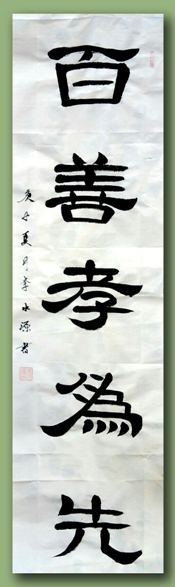 百善孝為先
庚子夏月李水源書